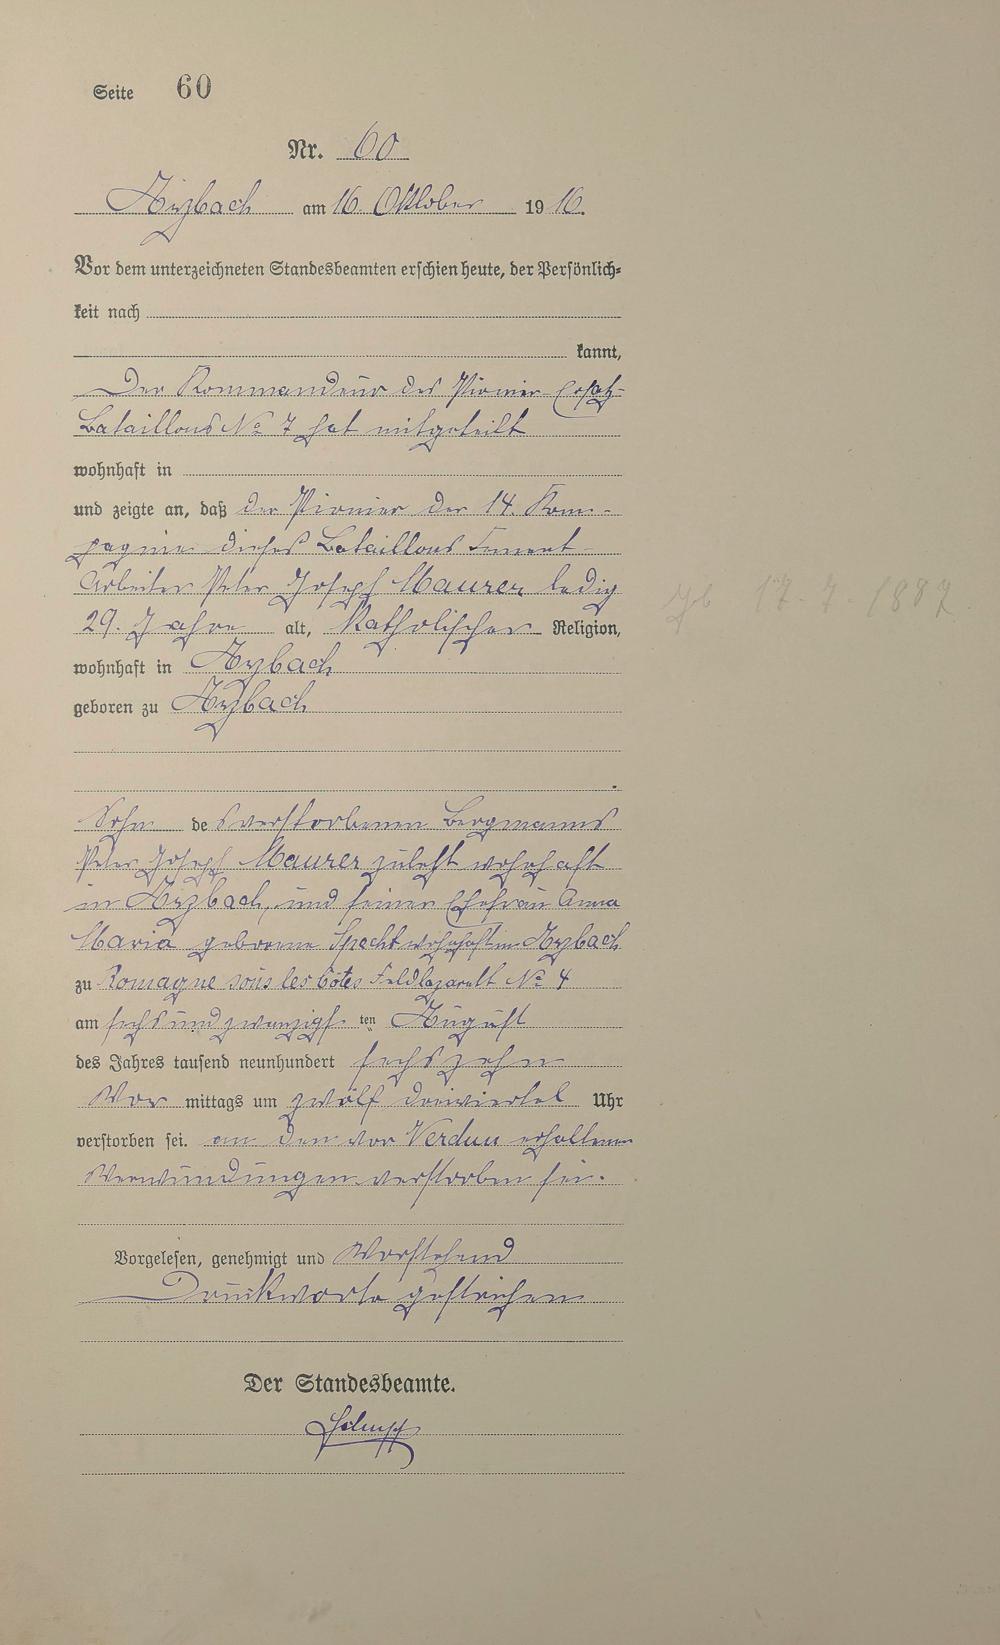 Seite 60
Nr. 60
Arzbach am 16. Oktober 1916.
Vor dem unterzeichneten Standesbeamten erschien heute, der Persönlich-
keit nach
kannt,
Der Kommandeur des Pionier Ersatz-
Bataillons No 7 hat mitgeteilt
wohnhaft in
und zeigte an, daß der Pionier der 14. Kom-
pagnie dieses Bataillons Cement-
Arbeiter Peter Joseph Maurer ledig
29. Jahre alt, Katholischer Religion,
wohnhaft in Arzbach
geboren zu Arzbach
Sohn des verstorbenen Bergmanns
Peter Joseph Maurer zuletzt wohnhaft
in Arzbach, und seiner Ehefrau Anna
Maria geborene Specht wohnhaft in Arzbach
zu Romagne sous les Côtes Feldlazarett No 4
am sechs und zwanzigsten August
des Jahres tausend neunhundert sechszehn
Vor mittags um zwölf dreiviertel Uhr
verstorben sei. an den vor Verdun erhaltenen
Verwundungen verstorben sei.
Vorgelesen, genehmigt und Vorstehend
Druckworte gestrichen
Der Standesbeamte.
gb 17.7.1887